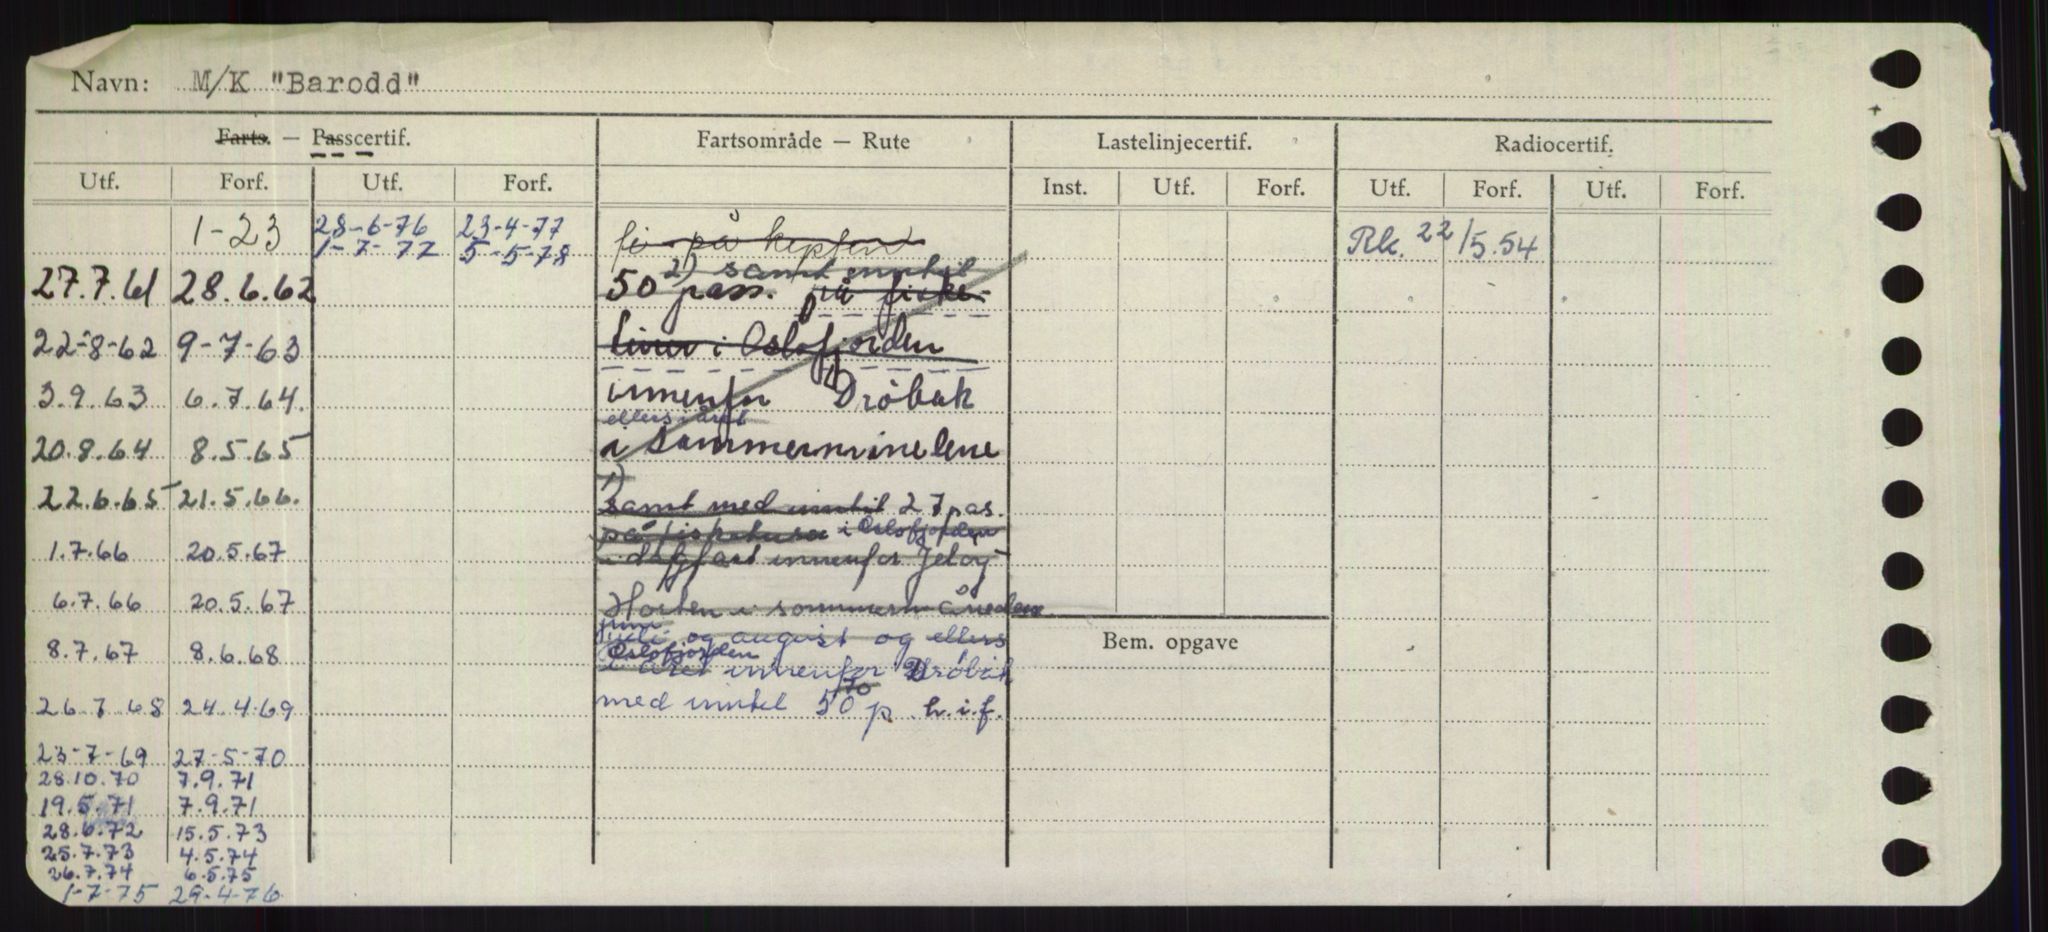 Navn: M/K "Barodd"
Farts. — Passcertif. Fartsområde — Rute Lastelinjecertif. Radiocertif.
Utf. Forf. Utf. Forf. Inst. Utf. Forf. Utf. Forf. Utf. Forf.
1-23 28-6-76 23-4-77 på Rk. 22/5.54
1-7-77 5-5-78
2) samt inntil
27.7.61 28.6.62 50 pass. på fiske-
22-8-62 9-7-63 turer i Oslofjorden
3.9.63 6.7.64. innenfor Drøbak
ellers i året
20.8.64 8.5.65 i sommermånedene
1)
22.6.65 21.5.66. samt med inntil 27 pas.
på fisketurer i Oslofjorden
1.7.66 20.5.67 i dagfart innenfor Jeløy
6.7.66 20.5.67 Horten i sommermånedene
juni
juli og august og ellers
8.7.67 8.6.68 Oslofjorden
året innenfor Drøbak
26.7.68 24.4.69 med inntil 50 p. h.i.f.
70
Bem. opgave
23-7-69 27-5-70
28.10.70 7.9.71
19.5.71 7.9.71
28.6.72 15.5.73
25.7.73 4.5.74
26.7.74 6.5.75
1-7-75 29-4-76